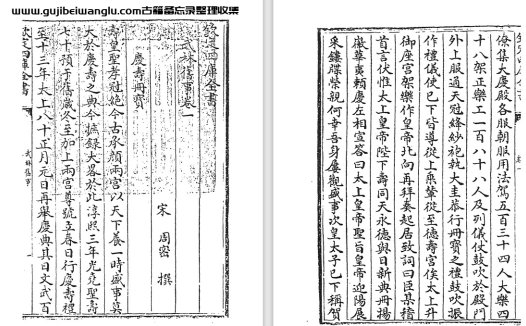 www.gujibeiwanglu.com古籍备忘录整理收集
欽定四庫全書
武林舊事卷一
宋 周密 撰
慶壽冊寳
壽皇聖孝冠絶今古承顔兩宫以天下養一時盛事莫
大於慶壽之典今摭録大畧於此淳熙三年光堯聖壽
七十預于舊歳冬至加上兩宫尊號立春日行慶壽禮
至十三年太上八十正月元日再舉慶典其日文武百
欽定四庫全書
武林舊事
僚集大慶殿各服朝服用法駕五百三十四人大樂四
十八架正樂工一百八十八人及列儀仗鼓吹於殿門
外上服通天冠絳紗袍執大圭恭行冊寳之禮鼓吹振
作禮儀使已下皆導從上乗輦從至德壽宫俟太上升
御座宫架樂作皇帝北向再拜奏起居致詞曰臣某稽
首言伏惟太上皇帝陛下壽同天永德與日新典冊揚
徽華夷頼慶左相宣答曰太上皇帝聖旨皇帝迎陽展
采鏤牒榮親何幸吾身屢觀盛事次皇太子已下稱賀